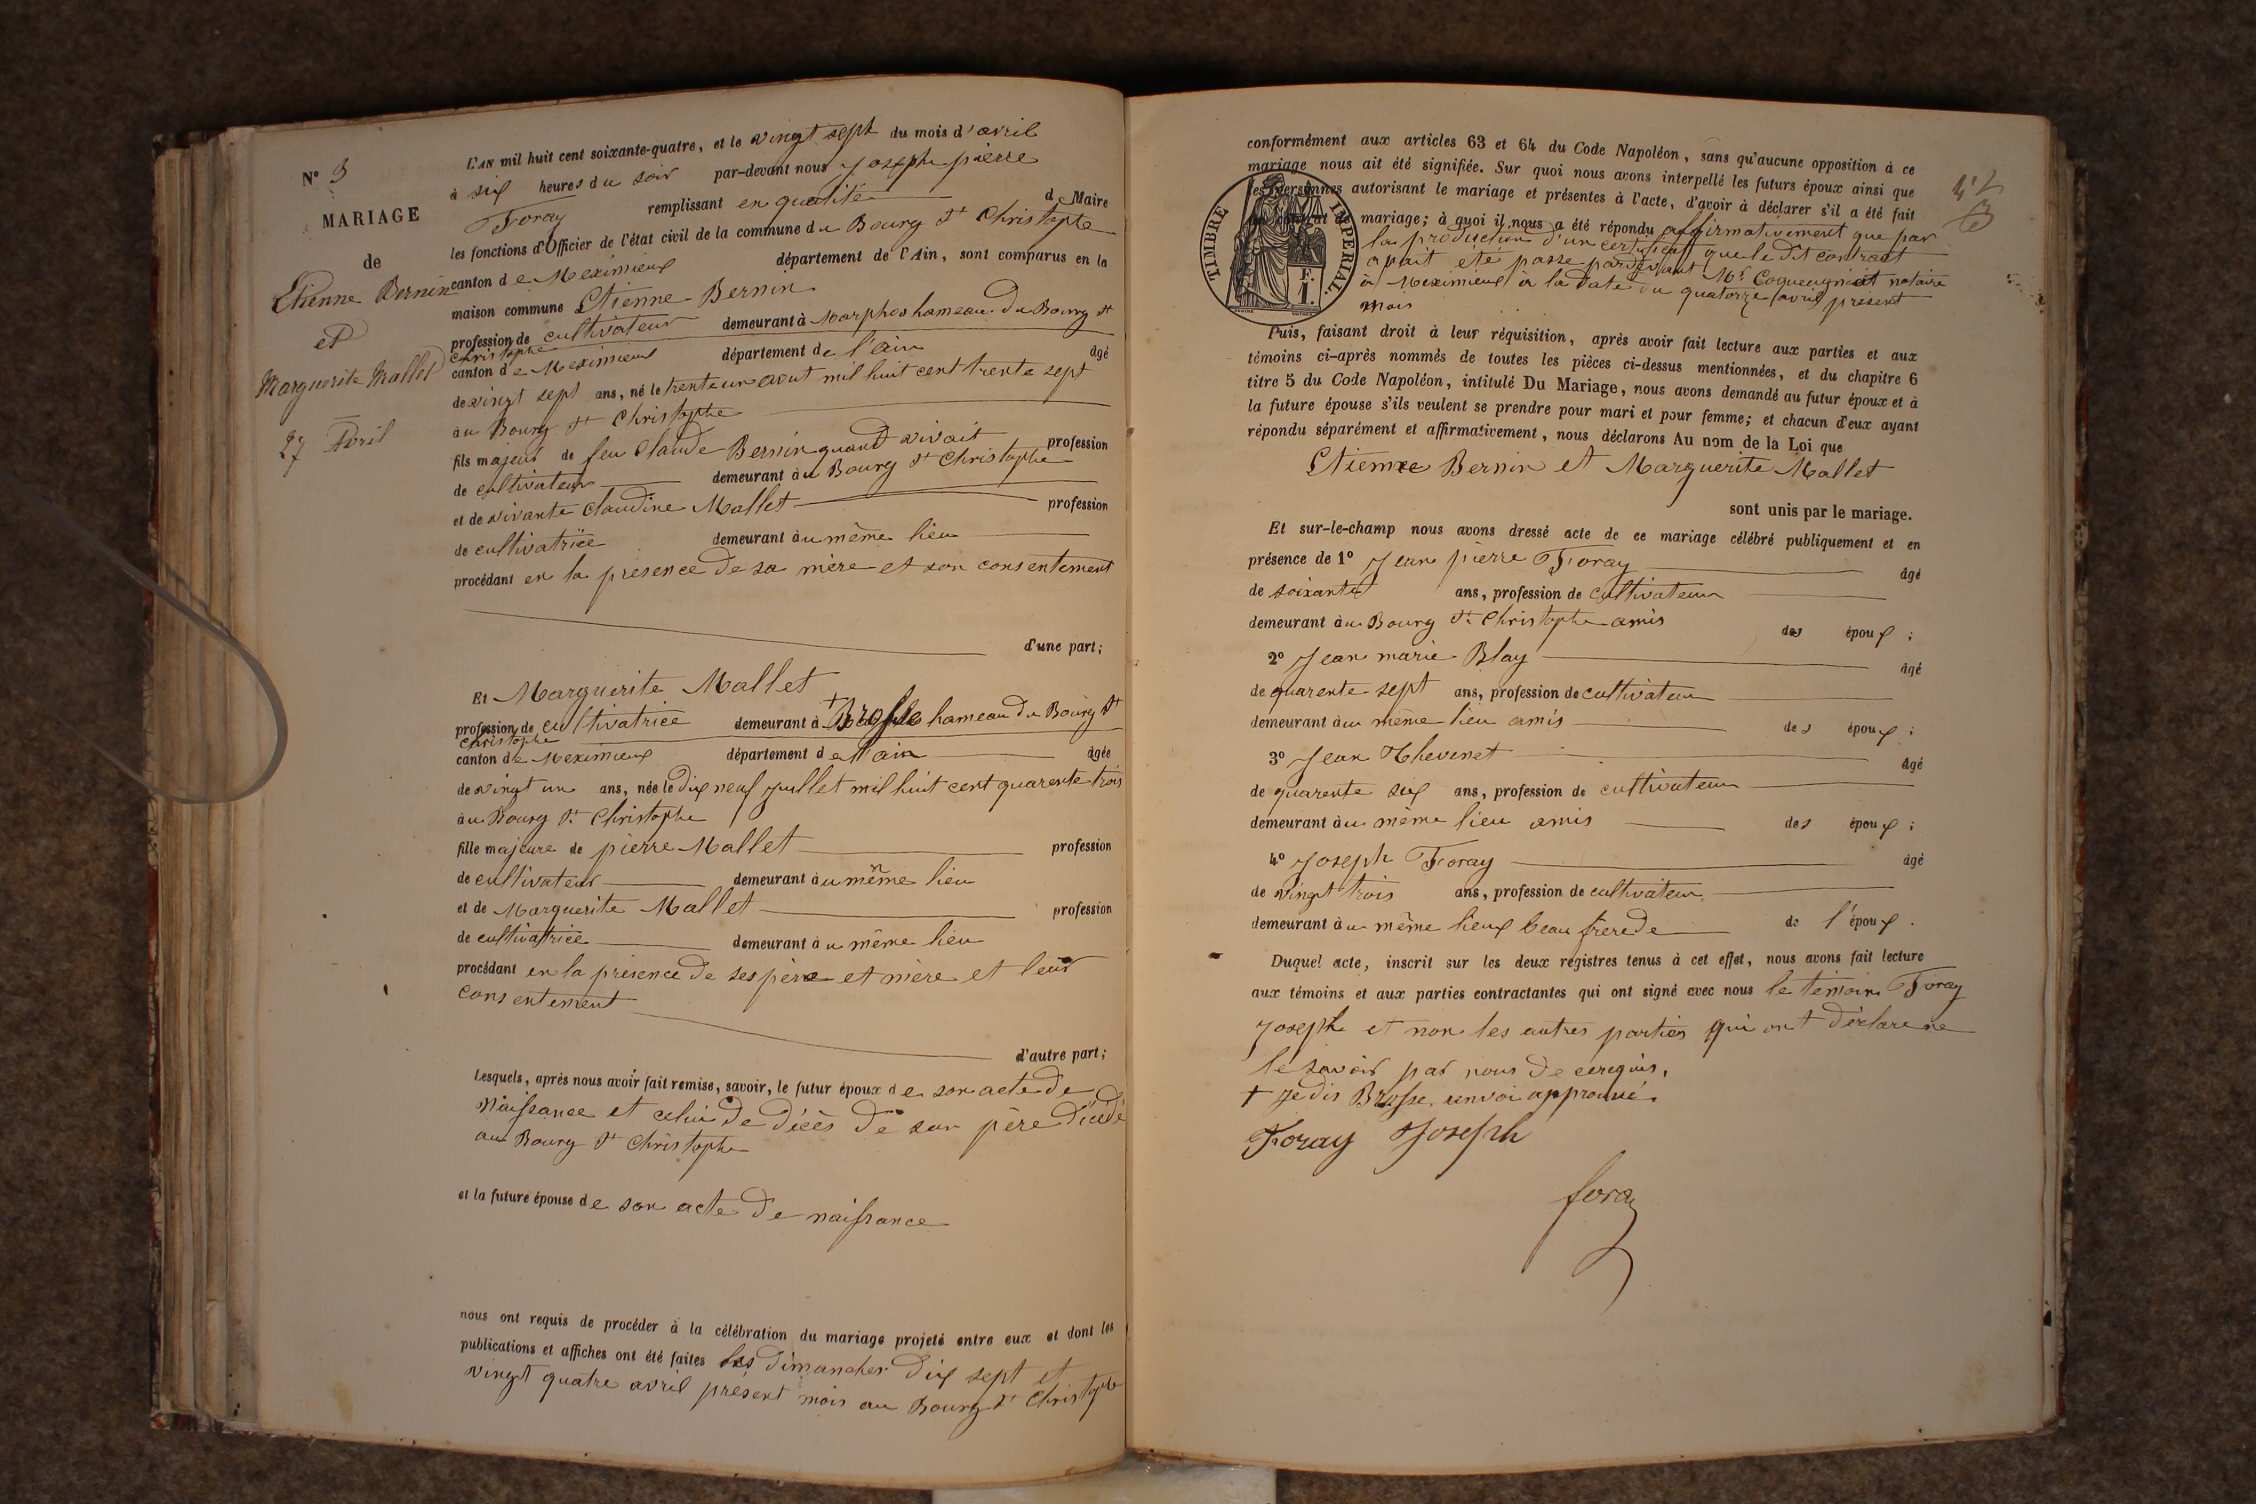 N° 3
MARIAGE
de
Etienne Bernin
et
Marguerite Mallet
27 Avril
L'AN mil huit cent soixante-quatre, et le vingt sept du mois d'avril
à six heures du soir par-devant nous Joseph pierre
Foray remplissant en qualité de Maire
les fonctions d'Officier de l'état civil de la commune du Bourg St Christophe
canton de Meximieux département de l'Ain, sont comparus en la
maison commune Etienne Bernin
profession de cultivateur demeurant à Marphos hameau du Bourg St
Christophe
canton de Meximieux département de l'ain âgé
de vingt sept ans, né le trente un aout mil huit cent trente sept
au Bourg St Christophe
fils majeur de feu Claude Bernin quand vivait profession
de cultivateur demeurant au Bourg St Christophe
et de vivante Claudine Mallet profession
de cultivatrice demeurant au même lieu
procédant en la présence de sa mère et son consentement
d'une part;
Et Marguerite Mallet
profession de cultivatrice demeurant à + Brosse hameau du Bourg St
Christophe
canton de Meximieux département de l'ain âgée
de vingt un ans, née le dix neuf juillet mil huit cent quarente trois
au Bourg St Christophe
fille majeure de pierre Mallet profession
de cultivateur demeurant au même lieu
et de Marguerite Mallet profession
de cultivatrice demeurant au même lieu
procédant en la présence de ses père et mère et leur
consentement
d'autre part;
Lesquels, après nous avoir fait remise, savoir, le futur époux de son acte de
naissance et celui de décès de son père décédé
au Bourg St Christophe
et la future épouse de son acte de naissance
nous ont requis de procéder à la célébration du mariage projeté entre eux et dont les
publications et affiches ont été faites les dimanches dix sept et
vingt quatre avril présent mois au Bourg St Christophe
conformément aux articles 63 et 64 du Code Napoléon, sans qu'aucune opposition à ce
mariage nous ait été signifiée. Sur quoi nous avons interpellé les futurs époux ainsi que
les personnes autorisant le mariage et présentes à l'acte, d'avoir à déclarer s'il a été fait
un contrat de mariage; à quoi il nous a été répondu affirmativement que par
la production d'un certificat que le dit contrat
avait été passé pardevant Me notaire
à Meximieux à la date du quatorze avril présent
mois
TIMBRE IMPERIAL.
F.
1.
Puis, faisant droit à leur réquisition, après avoir fait lecture aux parties et aux
témoins ci-après nommés de toutes les pièces ci-dessus mentionnées, et du chapitre 6
titre 5 du Code Napoléon, intitulé Du Mariage, nous avons demandé au futur époux et à
la future épouse s'ils veulent se prendre pour mari et pour femme; et chacun d'eux ayant
répondu séparément et affirmativement, nous déclarons Au nom de la Loi que
Etienne Bernin et Marguerite Mallet
sont unis par le mariage.
Et sur-le-champ nous avons dressé acte de ce mariage célébré publiquement et en
présence de 1° Jean pierre Foray âgé
de soixante ans, profession de cultivateur
demeurant au Bourg St Christophe amis des époux;
2° Jean marie Blay âgé
de quarente sept ans, profession de cultivateur
demeurant au même lieu amis des époux;
3° Jean Thevenet âgé
de quarente six ans, profession de cultivateur
demeurant au même lieu amis des époux;
4° Joseph Foray âgé
de vingt trois ans, profession de cultivateur
demeurant au même lieux beau frère de de l'époux.
Duquel acte, inscrit sur les deux registres tenus à cet effet, nous avons fait lecture
aux témoins et aux parties contractantes qui ont signé avec nous le témoin Foray
Joseph et non les autres parties qui ont déclaré ne
le savoir par nous de ce requis.
+ je dis Brosse renvoi approuvé.
Foray Joseph
foray